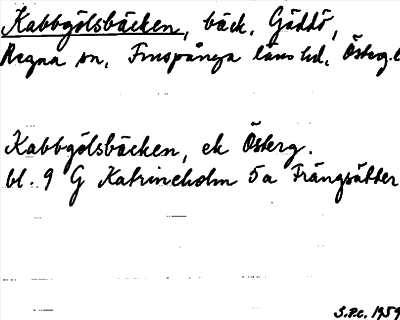 Kabbgölsbäcken, bäck, Gäddö,
Regna sn, Finspånga läns hd, Österg.
Kabbgölsbäcken, ek Österg.
bl. 9 G Katrineholm 5a Frängsätter
S.P.c. 1959